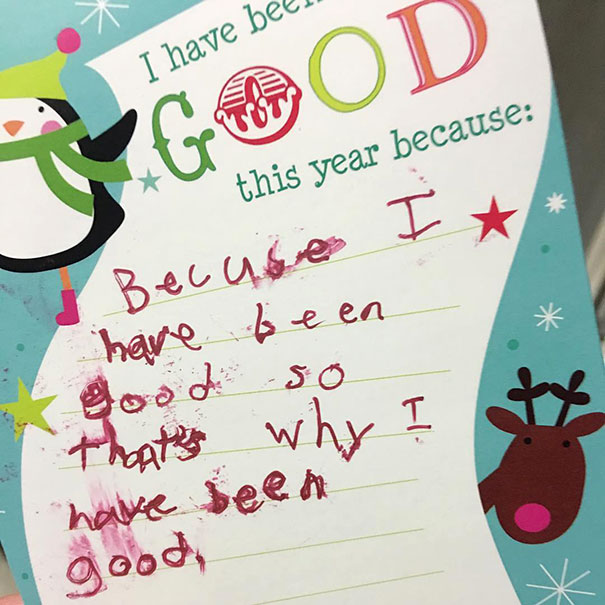 I have been
GOOD
this year because:
Becuse I
have been
good so
that's why I
have been
good.